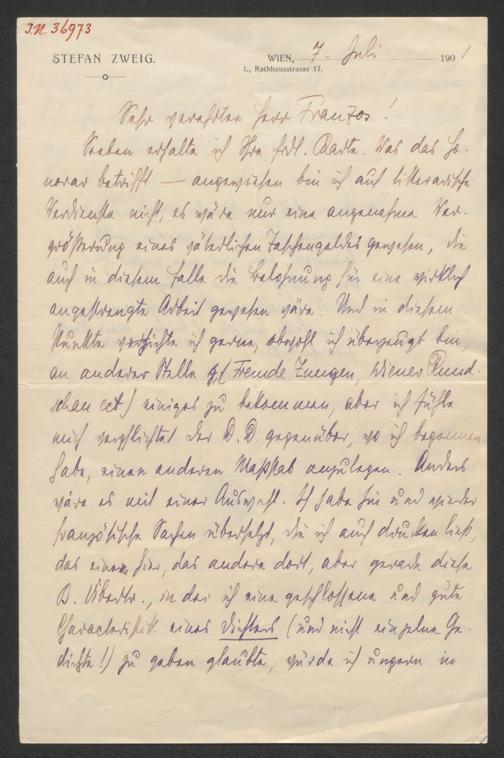 I.N. 36973
STEFAN ZWEIG.
WIEN, 7. Juli 1901
I., Rathhausstrasse 17.
Sehr verehrter Herr Franzos!
Soeben erhalte ich Ihre frdl. Karte. Was das Ho-
norar betrifft — angewiesen bin ich auf litterarische
Verdienste nicht, es wäre nur eine angenehme Ver-
größerung eines väterlichen Taschengeldes gewesen, die
auch in diesem Falle die Belohnung für eine wirklich
angestrengte Arbeit gewesen wäre. Und in diesem
Punkte verzichte ich gerne, obwohl ich überzeugt bin,
an anderer Stelle (Fremde Zungen, Wiener Rund-
schau ect.) einiges zu bekommen, aber ich fühle
mich verpflichtet der D. D. gegenüber, wo ich begonnen
habe, einen anderen Maßstab anzulegen. Anders
wäre es mit einer Auswahl. Ich habe hin und wieder
französische Sachen übersetzt, die ich auch drucken ließ,
das eine hier, das andere dort, aber gerade diese
B. Übertr., in der ich eine geschlossene und gute
Characteristik eines Dichters (und nicht einzelne Ge-
dichte!) zu geben glaubte, würde ich ungern in